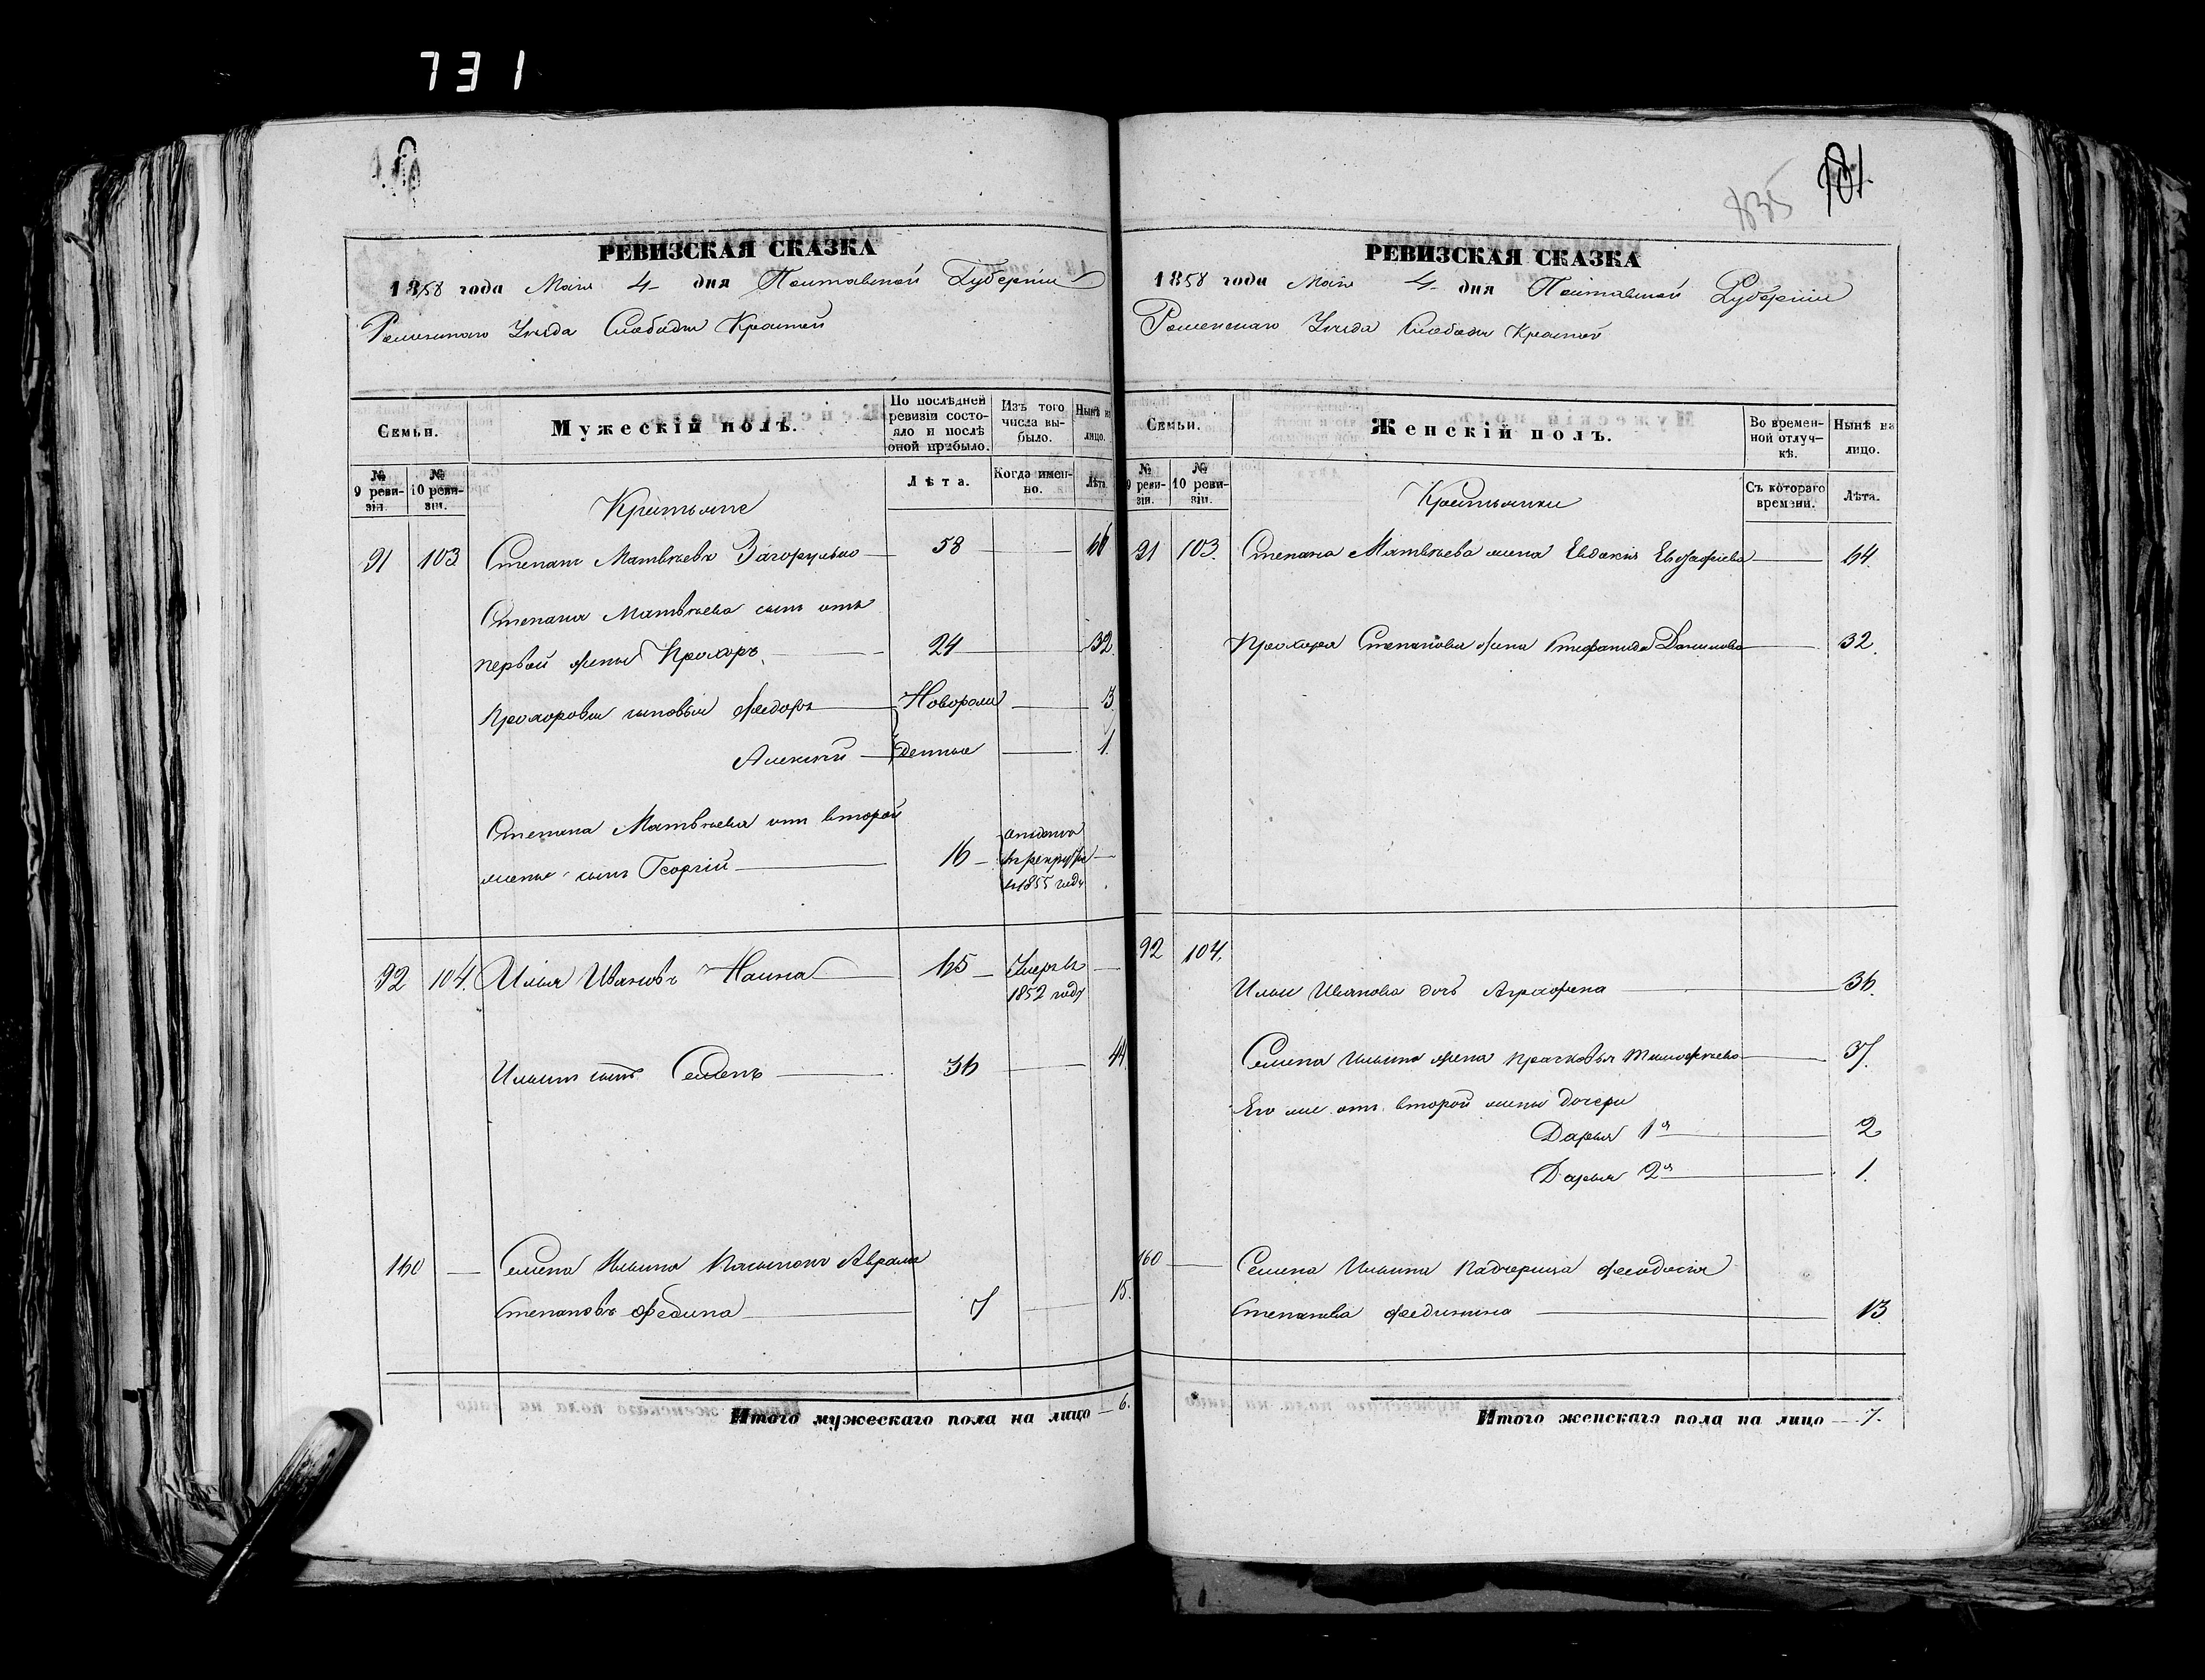 731
835
101.
РЕВИЗСКАЯ СКАЗКА
1858 года Мая 4 дня Полтавской Губерніи
Роменскаго Уѣзда Слободы Красной
Семьи.
Мужескій полъ.
По послѣдней ревизіи состояло и послѣ оной прибыло.
Изъ того числа выбыло.
Нынѣ на лицо.
№ 9 ревизіи.
№ 10 ревизіи.
Лѣта.
Когда именно.
Лѣта.
Крестьяне
91 103 Степанъ Матвѣевъ Загорулько 58 66
Степана Матвѣева сынъ отъ
первой жены Прохоръ 24 32.
Прохоровы сыновья Федоръ Новорож 3
Алексѣй денные 1.
Степана Матвѣева отъ второй
жены сынъ Георгій 16
отданъ
въ рекруты
въ 1855 году
92 104. Илья Ивановъ 65 Умеръ въ
1852 году
Ильинъ сынъ Семенъ 36 44
160 Семена Ильина Пасынокъ Аврамъ
Степановъ Федина 7 15.
Итого мужескаго пола на лицо 6.
РЕВИЗСКАЯ СКАЗКА
1858 года Мая 4 дня Полтавской Губерніи
Роменскаго Уѣзда Слободы Красной
Семьи.
Женскій полъ.
Во временной отлучкѣ.
Нынѣ на лицо.
№ 9 ревизіи.
№ 10 ревизіи.
Съ котораго времени.
Лѣта.
Крестьянки
91 103. Степана Матвѣева жена Евдокія 64.
Прохора Степанова жена Стефанида Данилова 32.
92 104.
Ильи Иванова дочь Аграфена 36.
Семена Ильина жена Прасковья Тимофѣева 37.
Его же отъ второй жены дочери
Дарья 1я 2
Дарья 2я 1.
160 Семена Ильина Падчерица Феодосія
Степанова Фединина 13
Итого женскаго пола на лицо 7.